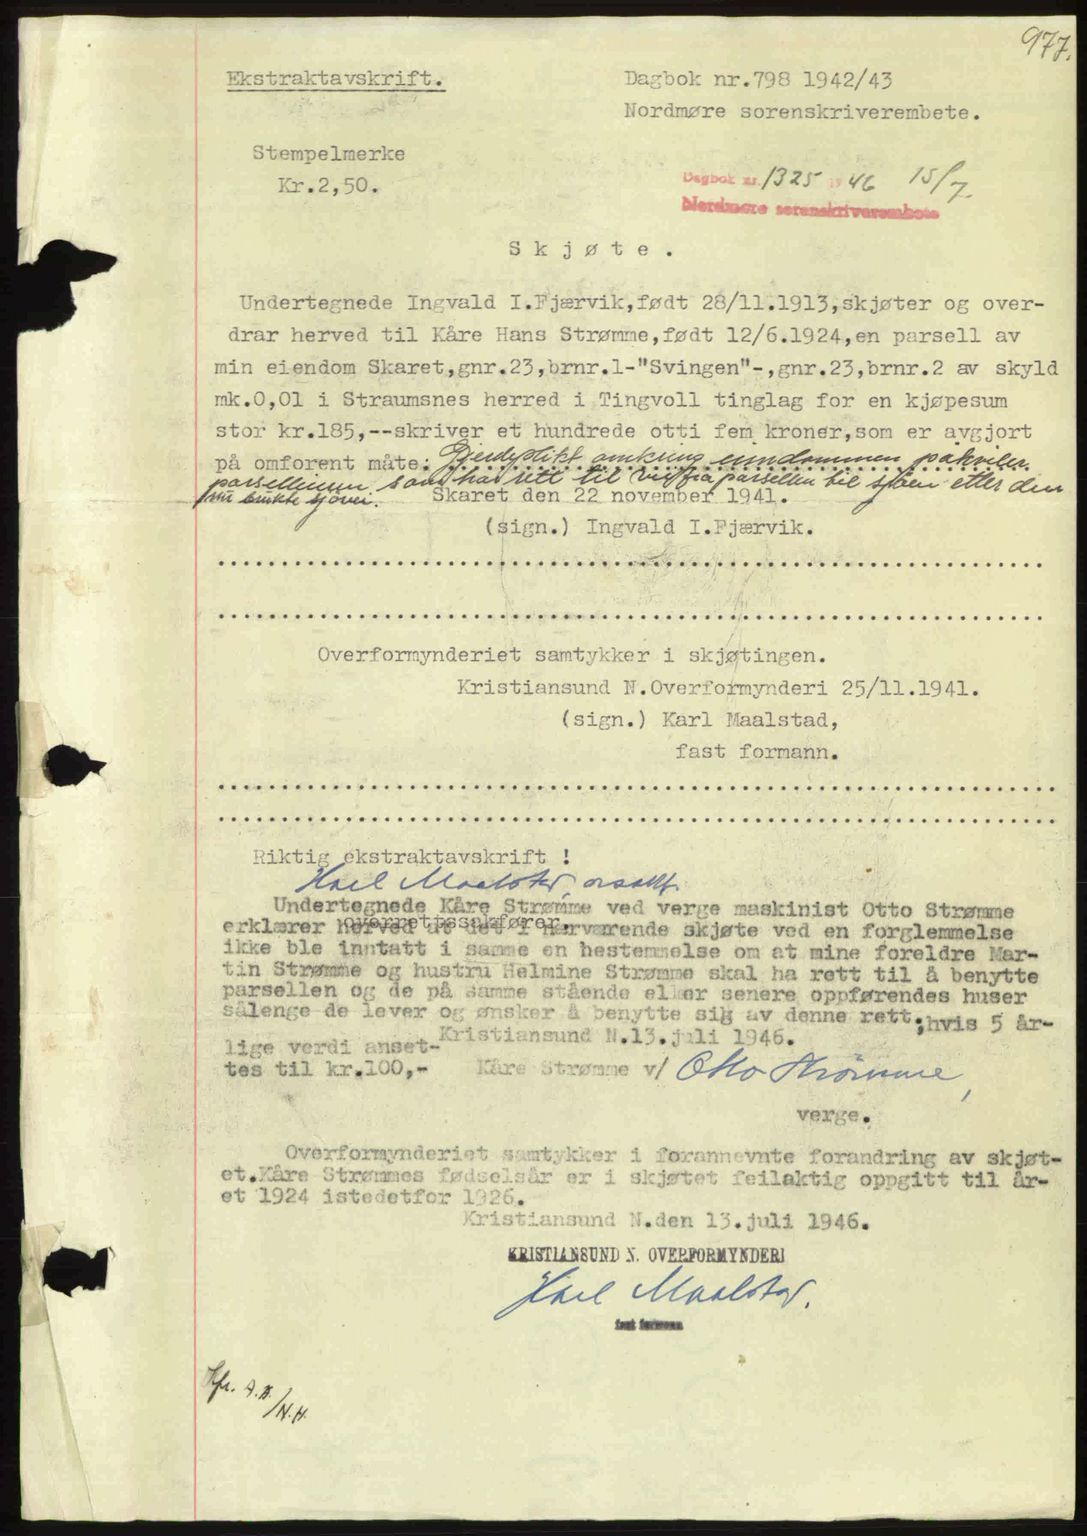 977.
Ekstraktavskrift.
Dagbok nr.798 1942/43
Nordmøre sorenskriverembete.
Stempelmerke
Kr.2,50.
Dagbok nr. 1325 1946 15/7.
Nordmøre sorenskriverembete
Skjøte.
Undertegnede Ingvald I.Fjærvik,født 28/11.1913,skjøter og over-
drar herved til Kåre Hans Strømme,født 12/6.1924,en parsell av
min eiendom Skaret,gnr.23,brnr.1-"Svingen"-,gnr.23,brnr.2 av skyld
mk.0,01 i Straumsnes herred i Tingvoll tinglag for en kjøpesum
stor kr.185,--skriver et hundrede otti fem kroner,som er avgjort
på omforent måte. Gjerdeplikt omkring eiendommen påhviler
parselleieren som har rett til vei fra parsellen til sjøen etter den
nu brukte sjøvei.
Skaret den 22 november 1941.
(sign.) Ingvald I.Fjærvik.
Overformynderiet samtykker i skjøtingen.
Kristiansund N.Overformynderi 25/11.1941.
(sign.) Karl Maalstad,
fast formann.
Riktig ekstraktavskrift !
Karl Maalstad, orsakf.
overrettssakfører.
Undertegnede Kåre Strømme ved verge maskinist Otto Strømme
erklærer herved at det i nærværende skjøte ved en forglemmelse
ikke ble inntatt i samme en bestemmelse om at mine foreldre Mar-
tin Strømme og hustru Helmine Strømme skal ha rett til å benytte
parsellen og de på samme stående eller senere oppførendes huser
sålenge de lever og ønsker å benytte sig av denne rett;hvis 5 år-
lige verdi anset-
tes til kr.100,-
Kristiansund N.13.juli 1946.
Kåre Strømme v/ Otto Strömme,
verge.
Overformynderiet samtykker i forannevnte forandring av skjøt-
et.Kåre Strømmes fødselsår er i skjøtet feilaktig oppgitt til år-
et 1924 istedetfor 1926.
Kristiansund N.den 13.juli 1946.
KRISTIANSUND N. OVERFORMYNDERI
Karl Maalstad.
fast formann
Kfr. A.H./N.H.